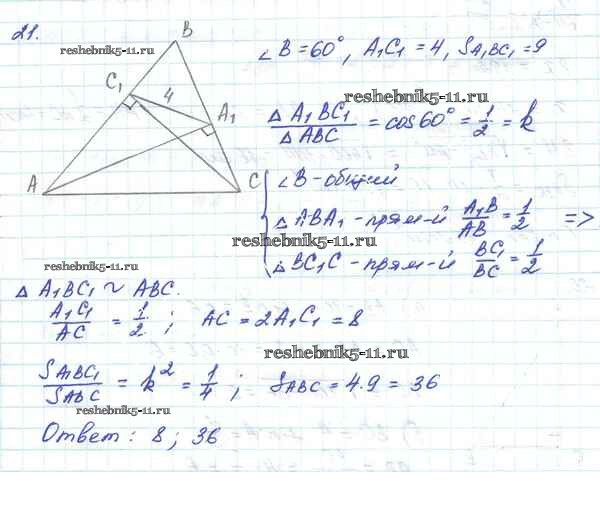 21.
B
∠B = 60°, A₁C₁ = 4, S A₁BC₁ = 9
reshebnik5-11.ru
C₁
4
A₁
reshebnik5-11.ru
△ A₁BC₁ / △ ABC = cos 60° = 1/2 = k
∠B - общий
A
C
△ ABA₁ - прям-й A₁B/AB = 1/2 =>
reshebnik5-11.ru
△ BC₁C - прям-й BC₁/BC = 1/2
reshebnik5-11.ru
△ A₁BC₁ ~ ABC.
A₁C₁/AC = 1/2 ; AC = 2A₁C₁ = 8
reshebnik5-11.ru
S A₁BC₁ / S ABC = k² = 1/4 ; S ABC = 4·9 = 36
reshebnik5-11.ru
Ответ: 8; 36